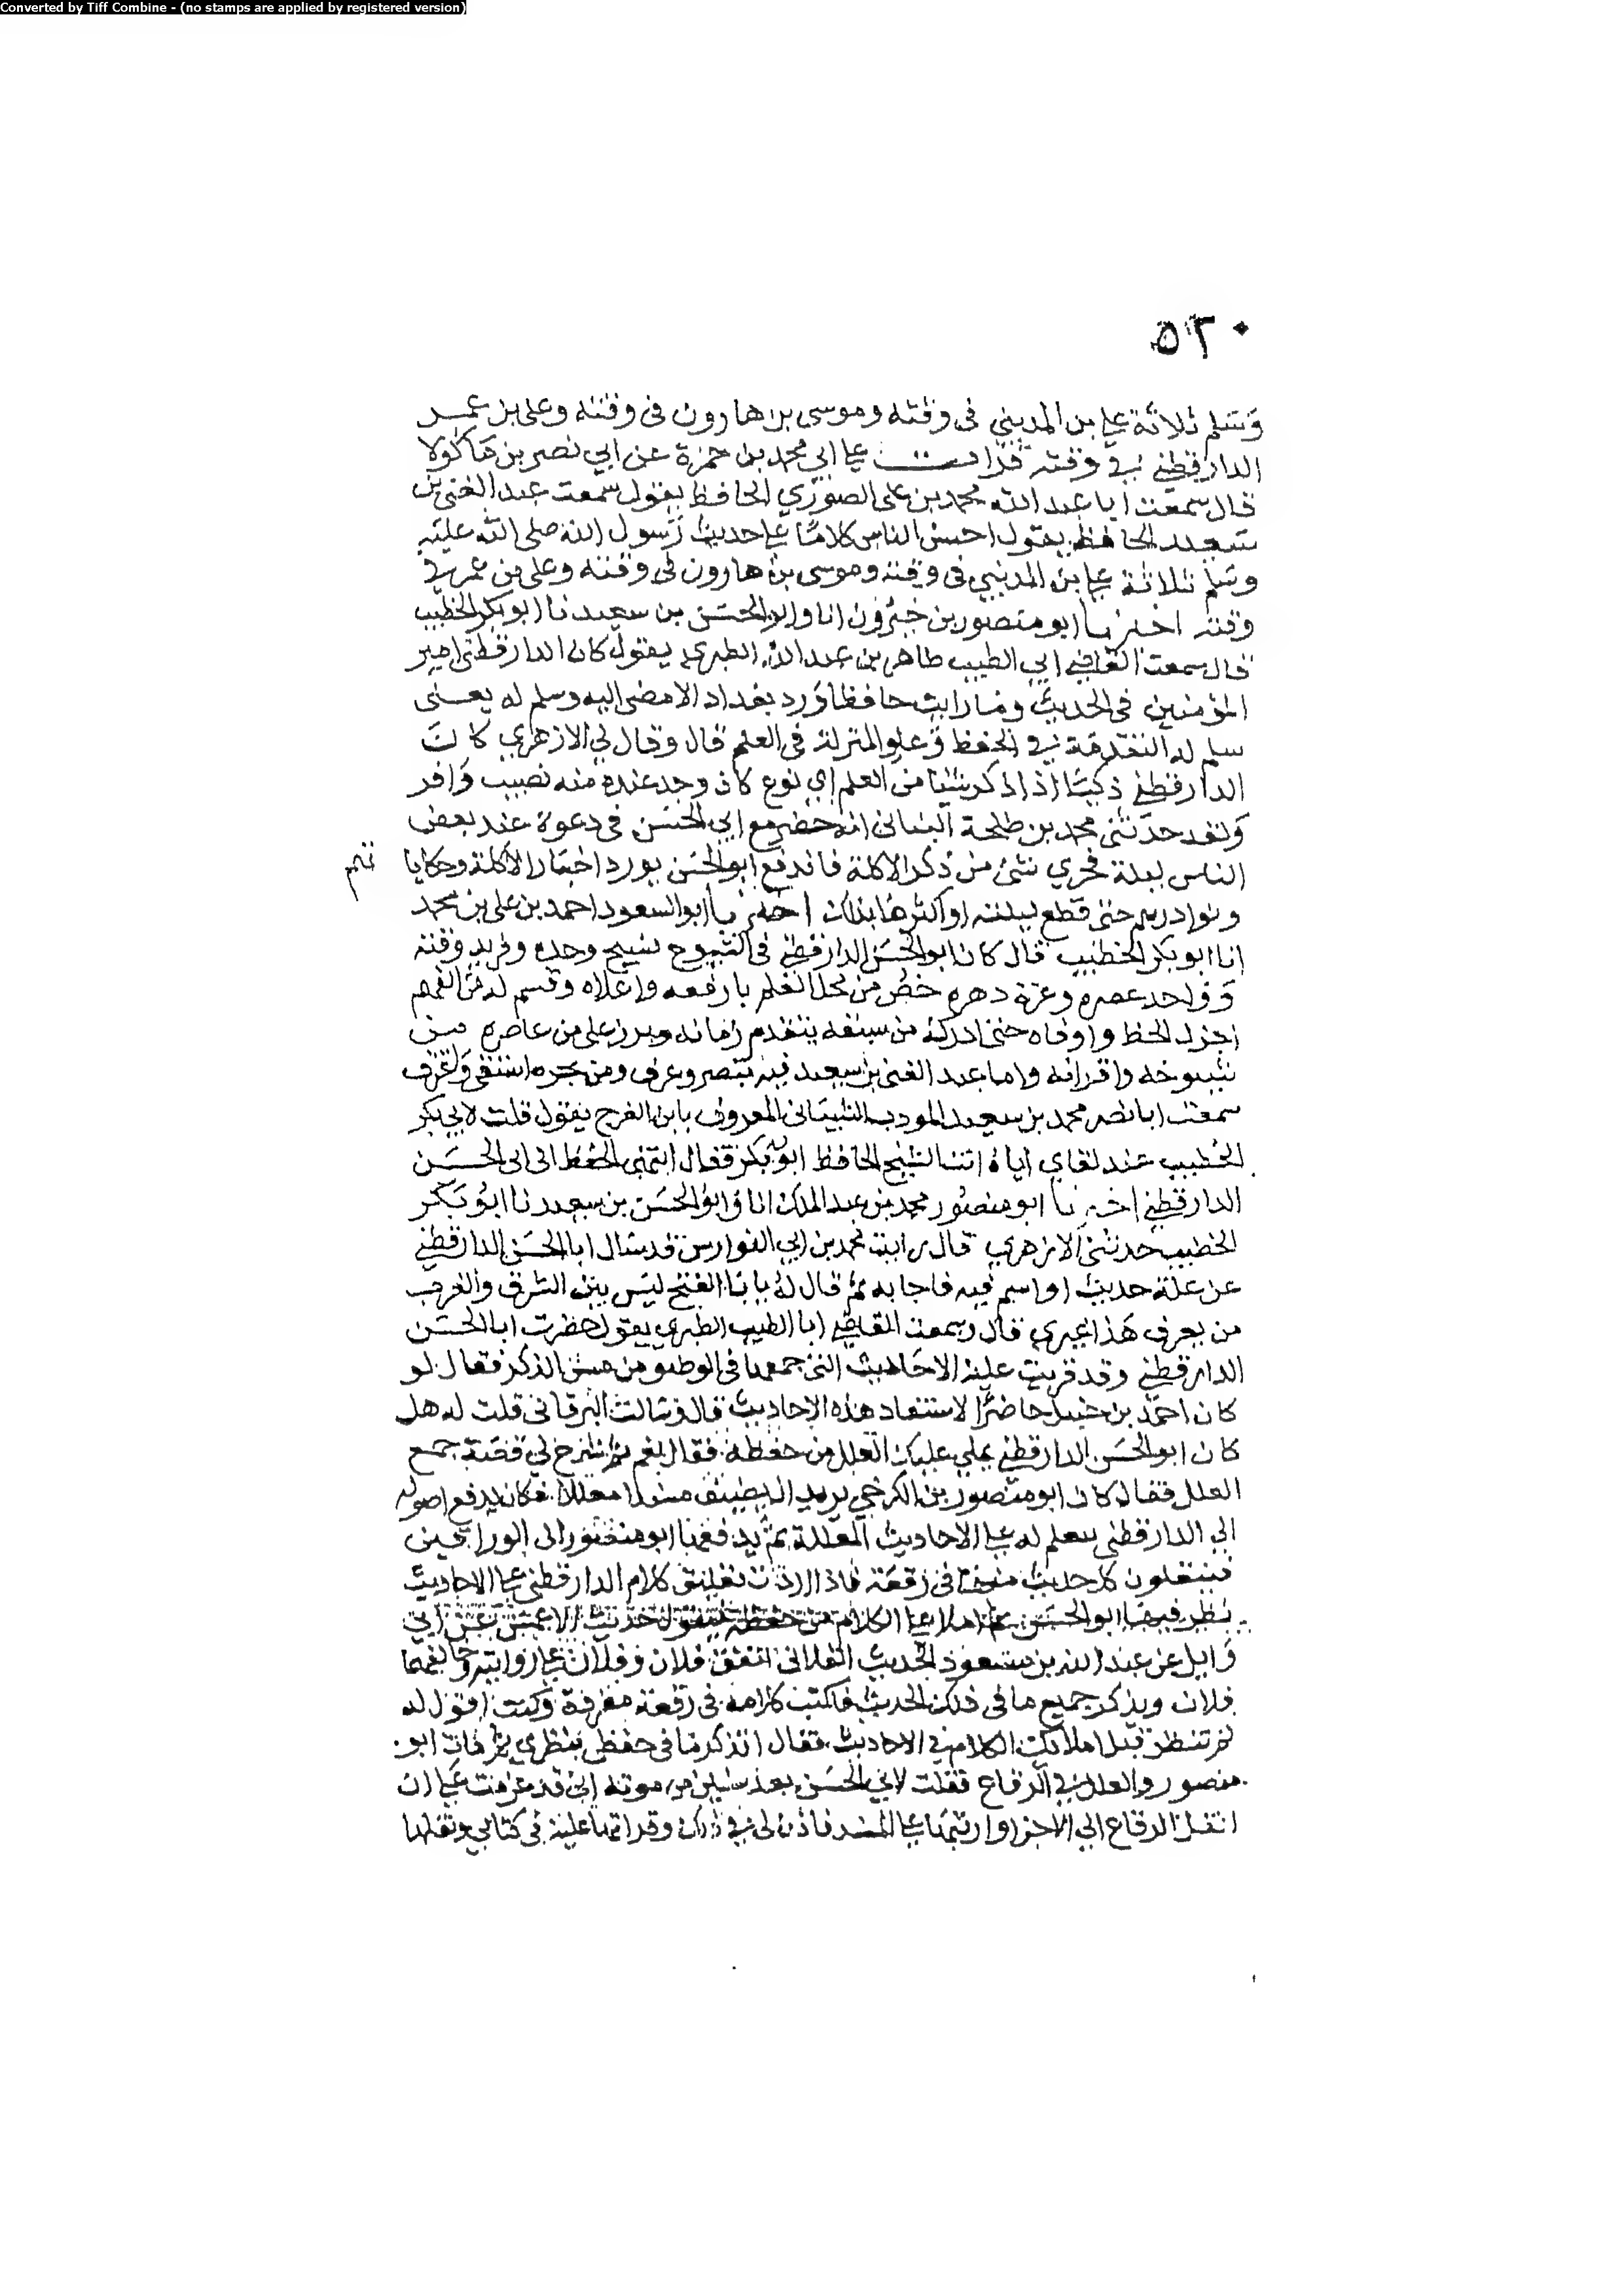 Converted by Tiff Combine - (no stamps are applied by registered version)
٥٢٠
وسلم ثلاثة علي بن المديني في وقته وموسى بن هارون في وقته وعلي بن عمر
الدارقطني في وقته قرات على ابي محمد بن حمزة عن ابي نصر بن ماكولا
قال سمعت ابا عبد الله محمد بن علي الصوري الحافظ يقول سمعت عبد الغني بن
سعيد الحافظ يقول احسن الناس كلاما على حديث رسول الله صلى الله عليه
وسلم ثلاثة علي بن المديني في وقته وموسى بن هارون في وقته وعلي بن عمر في
وقته اخبرنا ابو منصور بن خيرون انا وابو الحسن بن سعيد نا ابو بكر الخطيب
قال سمعت القاضي ابي الطيب طاهر بن عبد الله الطبري يقول كان الدارقطني امير
المؤمنين في الحديث وما رايت حافظا ورد بغداد الا مضى اليه وسلم له يعني
سلم له التقدمة في الحفظ وعلو المنزلة في العلم قال وقال لي الازهري كان
الدارقطني ذكيا اذا ذكر شيئا من العلم اي نوع كان وجد عنده منه نصيب وافر
ولقد حدثني محمد بن طلحة النعالي انه حضر مع ابي الحسن في دعوة عند بعض
الناس ليلة فجرى شئ من ذكر الاكلة فاندفع ابو الحسن يورد اخبار الاكلة وحكايا تهم
ونوادرهم حتى قطع ليلته او اكثرها بذلك اخبرنا ابو السعود احمد بن علي بن محمد
انا ابو بكر الخطيب قال كان ابو الحسن الدارقطني في الشيوخ نسيج وحده وفريد وقته
وواحد عصره وغرة دهره خص من محل العلم بارفعه واعلاه وقسم له من الفهم
اجزل الحظ واوفاه حتى ادرك من سبقه بتقدم زمانه وبرز على من عاصره من
شيوخه واقرانه واما عبد الغني بن سعيد فبه تبصر وعرف ومن بحره استقى واغترف
سمعت ابا نصر محمد بن سعيد المودب الشيباني المعروف بابن الفرج يقول قلت لابي بكر
الخطيب عند لقاي اياه انت الشيخ الحافظ ابو بكر فقال انتهى الحفظ الى ابي الحسن
الدارقطني اخبرنا ابو منصور محمد بن عبد الملك انا وابو الحسن بن سعيد نا ابو بكر
الخطيب حدثني الازهري قال رايت محمد بن ابي الفوارس قد سال ابا الحسن الدارقطني
عن علة حديث او اسم فيه فاجابه ثم قال له يا با الفتح ليس بين الشرق والغرب
من يعرف هذا غيري قال وسمعت القاضي ابا الطيب الطبري يقول حضرت ابا الحسن
الدارقطني وقد قريت عليه الاحاديث التي جمعها في الوضو من مس الذكر فقال لو
كان احمد بن حنبل حاضرا لاستفاد هذه الاحاديث قال وسالت البرقاني قلت له هل
كان ابو الحسن الدارقطني يملي عليك العلل من حفظه فقال نعم ثم شرح لي قصة جمع
العلل فقال كان ابو منصور بن الكرخي يريد ان يصنف مسندا معللا فكان يدفع اصوله
الى الدارقطني فيعلم له على الاحاديث المعللة ثم يدفعها ابو منصور الى الوراقين
فينقلون كل حديث منها في رقعة فاذا اردت تعليق كلام الدارقطني على الاحاديث
نظر فيها ابو الحسن ثم املا علي الكلام من حفظه فيقول حديث الاعمش عن ابي
وايل عن عبد الله بن مسعود الحديث الفلاني اتفق فلان وفلان على روايته وخالفهما
فلان ويذكر جميع ما في ذلك الحديث فاكتب كلامه في رقعة مفردة وكنت اقول له
لم تنظر قبل املائك الكلام في الاحاديث فقال اتذكر ما في حفظي بنظري ثم مات ابو
منصور والعلل في الرقاع فقلت لابي الحسن بعد سنين من موته اني قد عزمت على ان
انقل الرقاع الى الاجزا وارتبها على المسند فاذن لي في ذلك وقراتها عليه في كتابي ونقلها